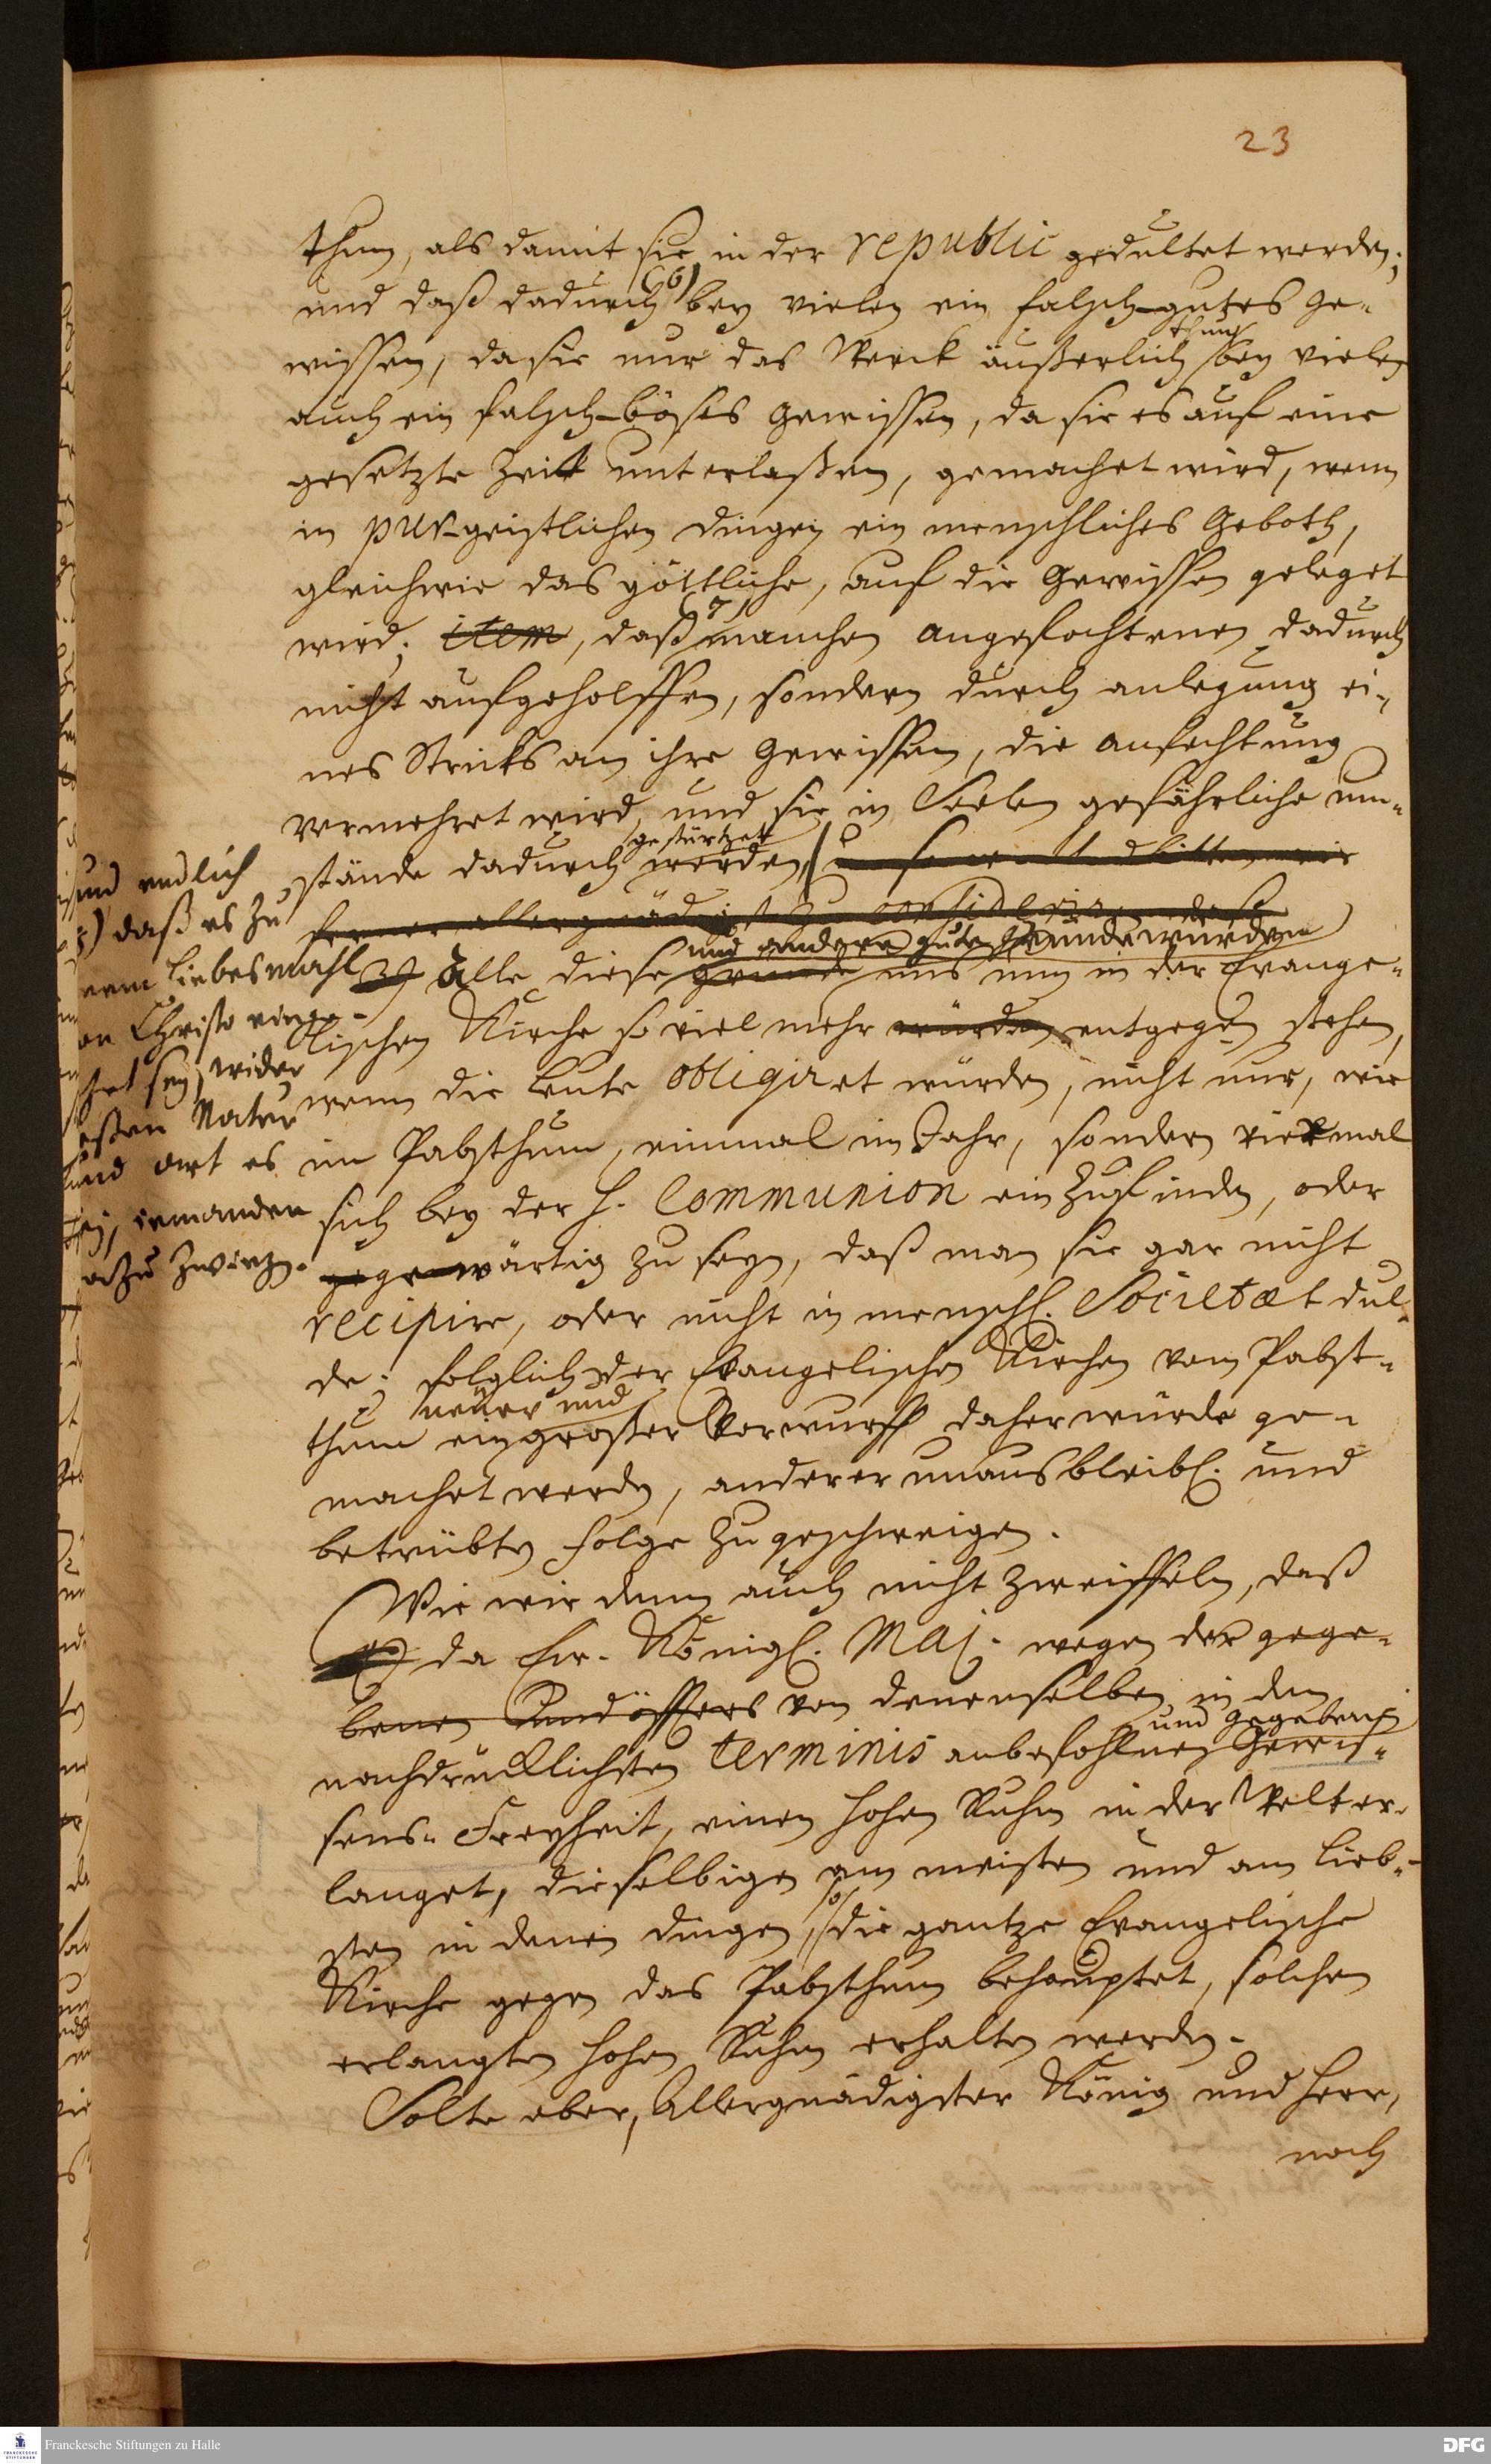 23
thun, als damit sie in der republic gedultet werden;
und daß dadurch (6) bey vielen ein falsch-gutes Ge-
wissen, da sie nur das Werck äußerlich thun, bey vielen
auch ein falsch-böses Gewissen, da sie es auf eine
gesetzte Zeit unterlaßen, gemachet wird, wenn
in pur-geistlichen dingen ein menschliches Geboth,
gleichwie das göttliche, auf die Gewissen geleget
wird; item, daß (7) manchen angefochtenen dadurch
nicht aufgeholffen, sondern durch anlegung ei-
nes Stricks an ihre Gewissen, die anfechtung
vermehret wird, und sie in Seelen gefährliche um-
stände dadurch gestürtzet werden, bitten wir
ferner allergnädigst zu consideriren, daß
und andere gute Gründe würden
alle diese Gründe uns nun in der Evange-
lischen Kirche so viel mehr würden entgegen stehen,
wenn die Leute obligiret würden, nicht nur, wie
im Pabsthum, einmal im Jahr, sondern viermal
sich bey der H. Communion einzufinden, oder
gegenwärtig zu seyn, daß man sie gar nicht
recipire, oder nicht in menschl. Societæt dul-
de; folglich der Evangelischen Kirchen vom Pabst-
neuer und
thum ein großer Vorwurff daher würde ge-
machet werden, anderer unausbleibl. und
betrübten Folge zu geschweigen.
und endlich
daß es zu
nem Liebesmahl
on Christo einge-
setzt sey, wider
eßen Natur
und art es
sey, iemanden
azu zwingen.
Wie wir denn auch nicht zweifeln, daß
da Ew. Königl. Maj. wegen der gege-
benen von denenselben in den
und gegebenen
nachdrücklichsten terminis anbefohlnen Gewis-
sens-Freyheit, einen hohen Ruhm in der Welt er-
langet, dieselbige am meisten und am lieb-
sten in denen dingen, so die gantze Evangelische
Kirche gegen das Pabsthum behauptet, solchen
erlangten hohen Ruhm erhalten werden.
Solte aber, Allergnädigster König und Herr,
noch
Franckesche Stiftungen zu Halle
DFG